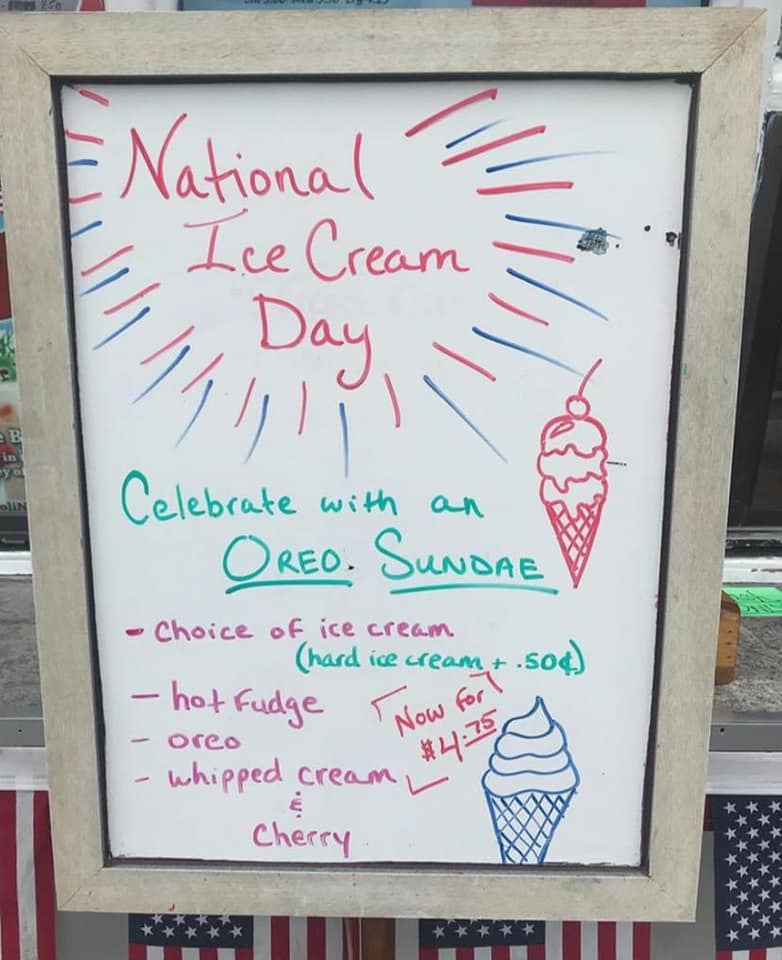 National
Ice Cream
Day
Celebrate with an
OREO. SUNDAE
- Choice of ice cream
(hard ice cream + .50¢)
- hot Fudge
- oreo
- whipped cream
&
Cherry
Now for
$4.75